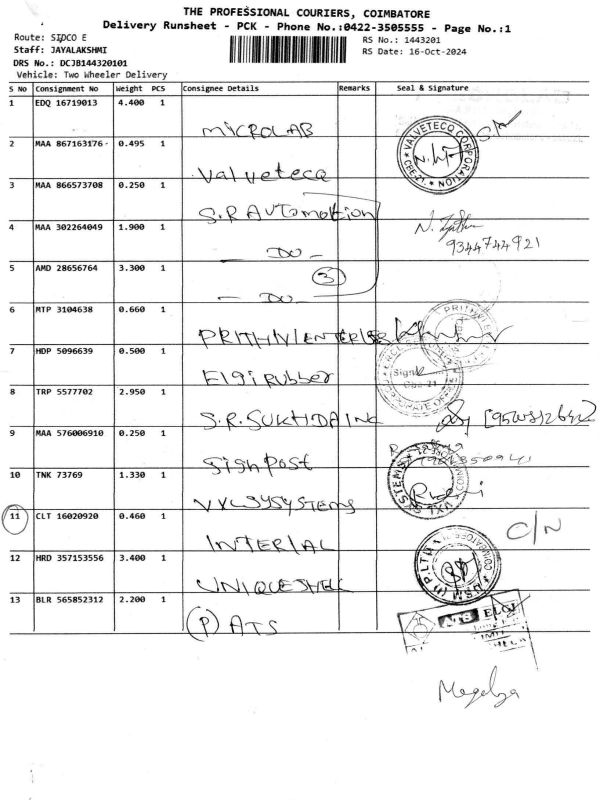 THE PROFESSIONAL COURIERS, COIMBATORE
Delivery Runsheet - PCK - Phone No.:0422-3505555 - Page No.:1
Route: SIDCO E
RS No.: 1443201
Staff: JAYALAKSHMI
RS Date: 16-Oct-2024
DRS No.: DCJB144320101
Vehicle: Two Wheeler Delivery
S No Consignment No Weight PCS Consignee Details Remarks Seal & Signature
1 EDQ 16719013 4.400 1 MICROLAB
2 MAA 867163176 0.495 1 Valveteca
VALVETECQ CORPORATION CBE-21
3 MAA 866573708 0.250 1 S.R Automation
4 MAA 302264049 1.900 1 - DO -
9344744921
5 AMD 28656764 3.300 1 - DO -
3
6 MTP 3104638 0.660 1 PRITHIV ENTERPRISES
PRITHIV
7 HDP 5096639 0.500 1 Elgi rubber
8 TRP 5577702 2.950 1 S.R. SUKHDA INC
9 MAA 576006910 0.250 1 Sign Post
10 TNK 73769 1.330 1 VXL SYSYSTEMS
11 CLT 16020920 0.460 1 INTERIAL C/N
12 HRD 357153556 3.400 1 UNIQUE SHELL
13 BLR 565852312 2.200 1 (P) ATS
ELGI